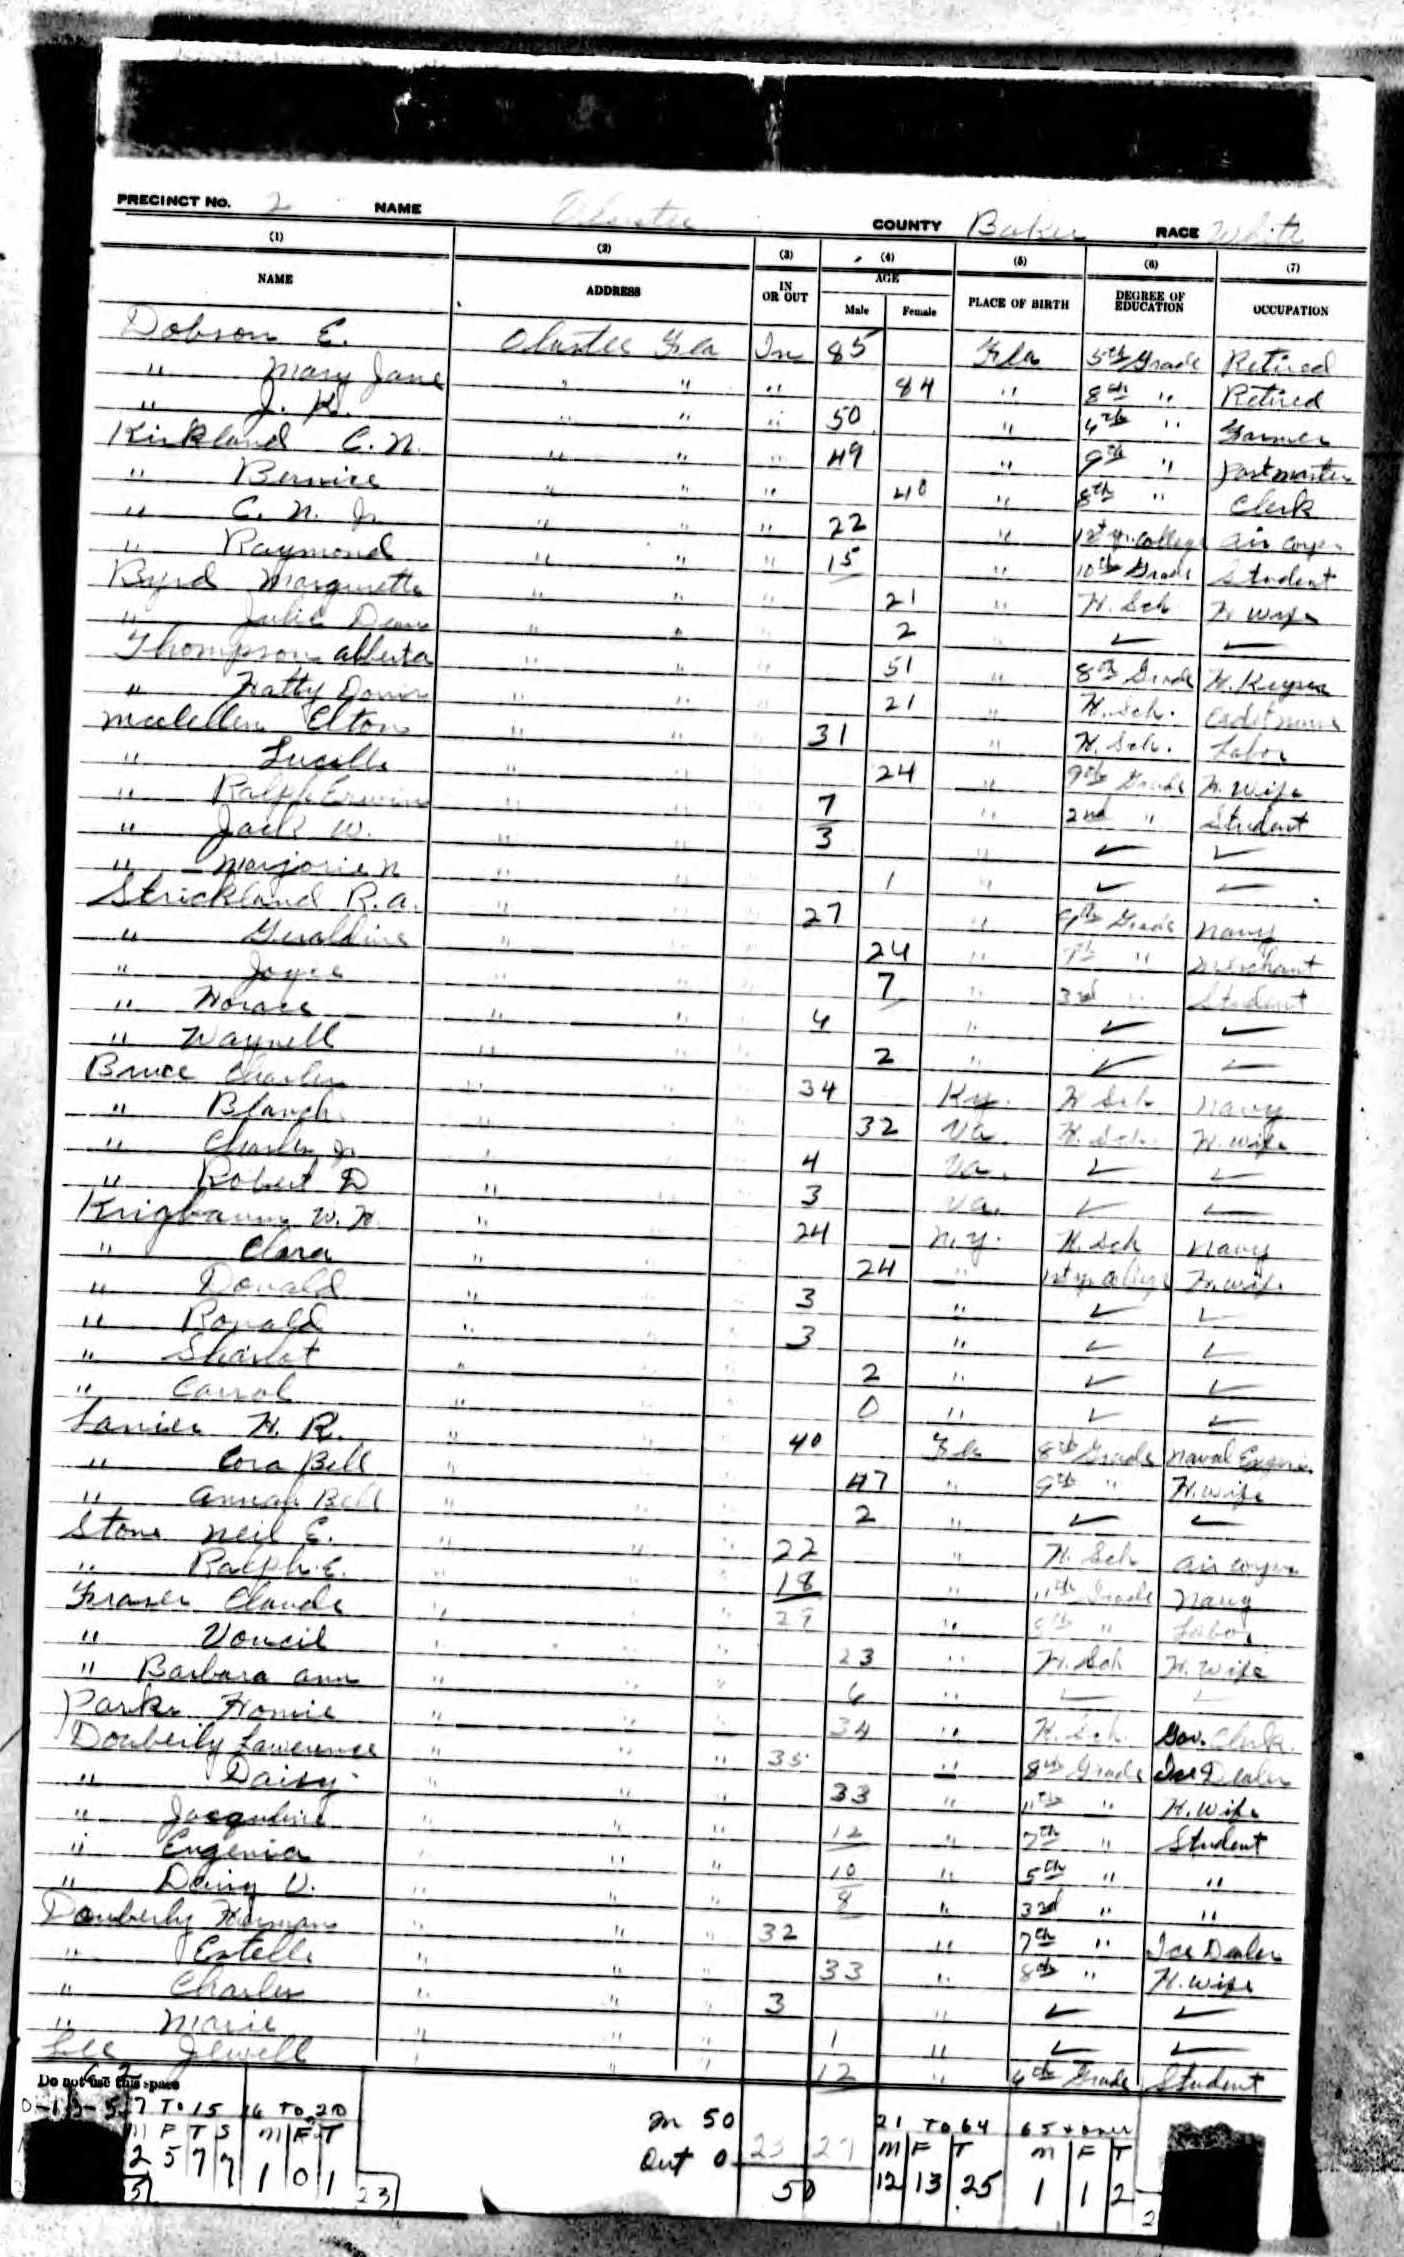 PRECINCT No. 2 NAME Olustee COUNTY Baker RACE White
(1) (2) (3) (4) (5) (6) (7)
NAME ADDRESS IN OR OUT AGE Male Female PLACE OF BIRTH DEGREE OF EDUCATION OCCUPATION
Dobson E. Olustee Fla In 85 Fla 5th Grade Retired
" Mary Jane " " " 84 " 8th " Retired
" J. K. " " " 50 " 4th " Farmer
Kirkland C. N. " " " 49 " 9th " Postmaster
" Bernice " " " 40 " 8th " Clerk
" C. N. Jr " " " 22 " 1st yr. College Air Corps
" Raymond " " " 15 " 10th Grade Student
Byrd Margurette " " " 21 " H. Sch H wife
" Julie Dean " " " 2 " ✓ ✓
Thompson Alberta " " " 51 " 8th Grade H. Keeper
" Hatty Doris " " " 21 " H. Sch. Cadet nurse
McClellen Elton " " " 31 " H. Sch. Labor
" Lucille " " " 24 " 9th Grade H. Wife
" Ralph Erwin " " " 7 " 2nd " Student
" Jack W. " " " 3 " ✓ ✓
" Marjorie N " " " 1 " ✓ ✓
Strickland R. A. " " " 27 " 9th Grade Navy
" Geraldine " " " 24 " 9th " Merchant
" Joyce " " " 7 " 3rd " Student
" Horace " " " 4 " ✓ ✓
" Waynell " " " 2 " ✓ ✓
Bruce Charles " " " 34 Ky. H Sch Navy
" Blanch " " " 32 Va. H. Sch. H. wife
" Charles Jr " " " 4 Va. ✓ ✓
" Robert D " " " 3 Va. ✓ ✓
Krigbaum W. H. " " " 24 N. Y. H. Sch Navy
" Clara " " " 24 " 1st yr College H. wife
" Donald " " " 3 " ✓ ✓
" Ronald " " " 3 " ✓ ✓
" Sharlot " " " 2 " ✓ ✓
" Carrol " " " 0 " ✓ ✓
Lanier H. R. " " " 40 Fla 8th Grade Naval
" Cora Bell " " " 47 " 9th " H. wife
" Annah Bell " " " 2 " ✓ ✓
Stone Neil E. " " " 22 " H. Sch Air Corps
" Ralph E. " " " 18 " 11th Grade Navy
Fraser Claude " " " 29 " " Labor
" Voncil " " " 23 " H. Sch H. Wife
" Barbara Ann " " " 6 " ✓ ✓
Parks Homie " " " 34 " H. Sch. Gov. Clerk
Douberly Lawrence " " " 35 " 8th Grade Ice Dealer
" Daisy " " " 33 " 11th " H. Wife
" Jacquline " " " 12 " 7th " Student
" Eugenia " " " 10 " 5th " "
" Daisy V. " " " 8 " 3rd " "
Douberly Herman " " " 32 " 7th " Ice Dealer
" Estelle " " " 33 " 8th " H. wife
" Charles " " " 3 " ✓ ✓
" Marie " " " 1 " ✓ ✓
Lee Jewell " " " 12 " 4th Grade Student
Do not use this space
7 To 15 16 To 20 In 50 21 To 64 65 + over
M F T S M F T Out 0 23 27 M F T M F T
2 5 7 7 1 0 1 23 50 12 13 25 1 1 2